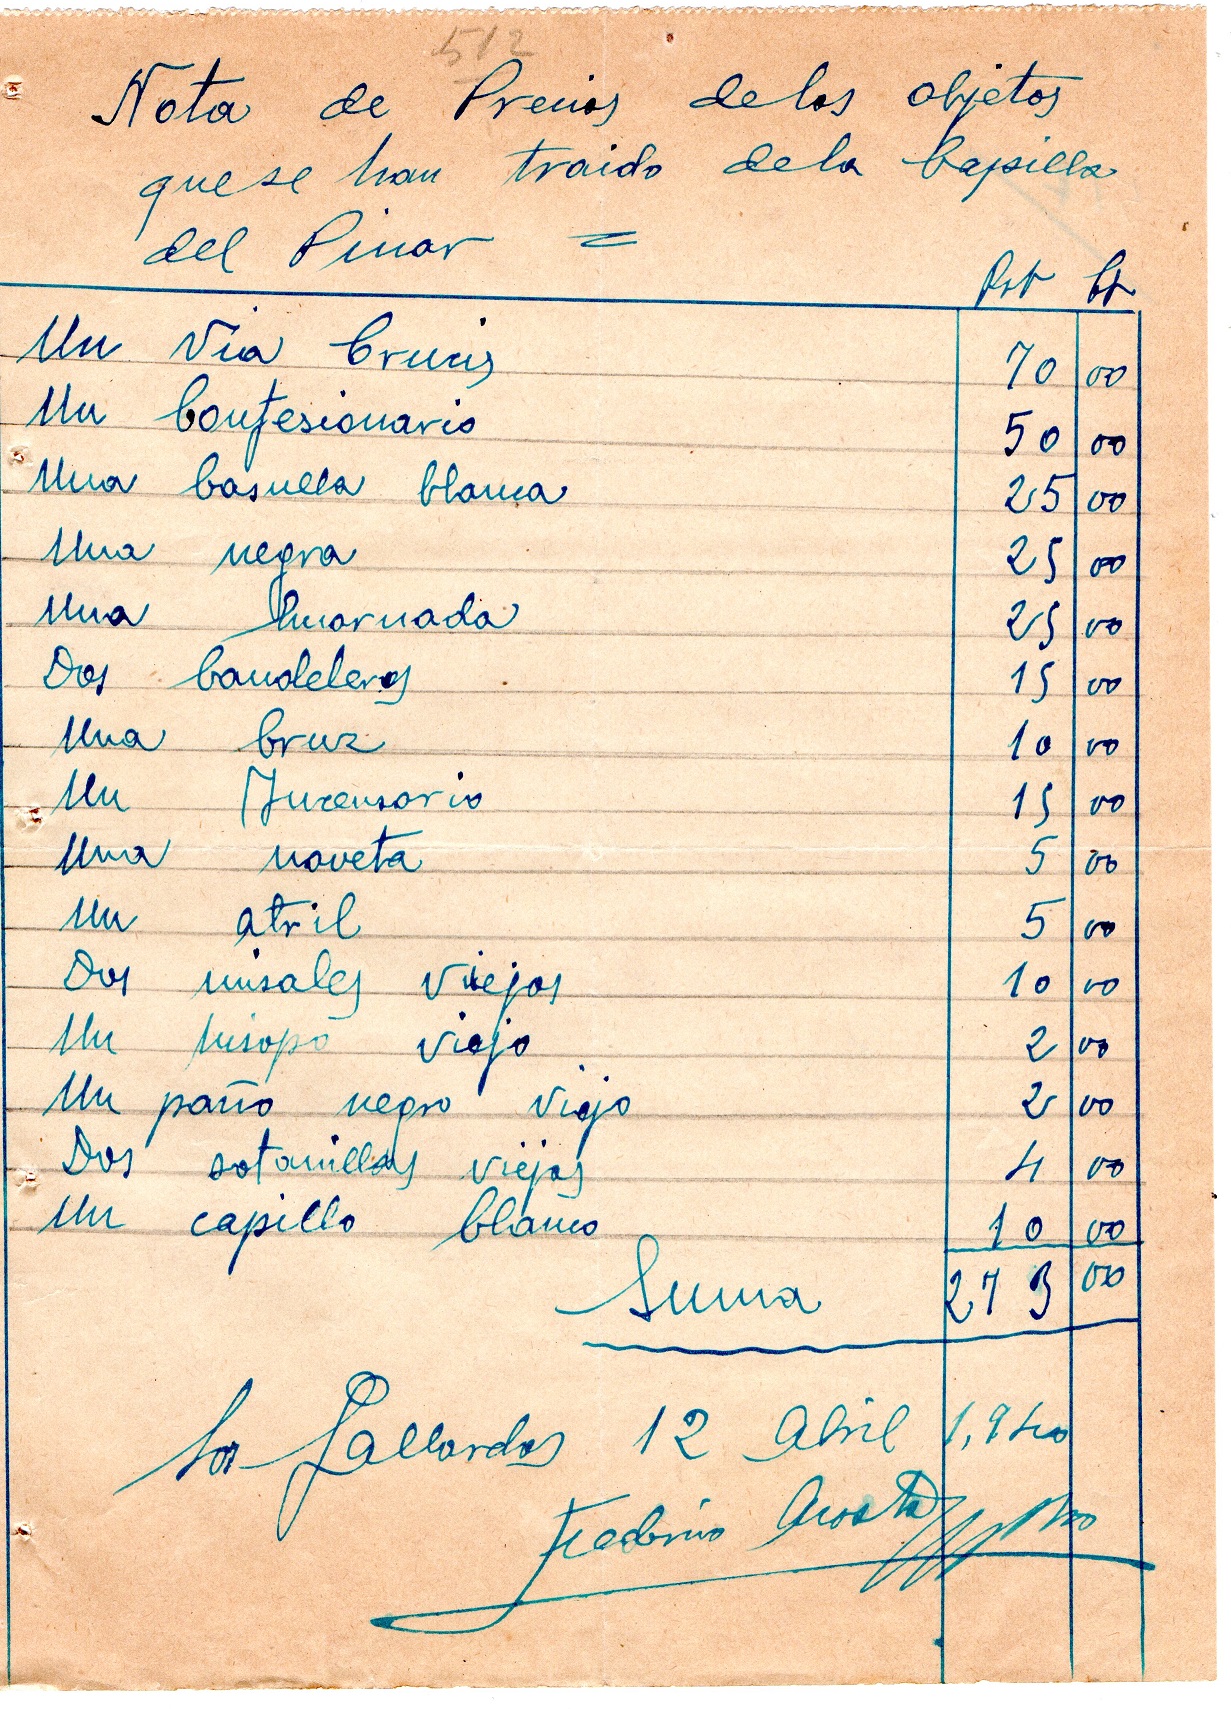 512
Nota de Precios de los objetos
que se han traido de la Capilla
del Pinar =
Pst Ct
Un Via Crucis 70 00
Un Confesionario 50 00
Una Casulla blanca 25 00
Una negra 25 00
Una Encarnada 25 00
Dos Candeleros 15 00
Una Cruz 10 00
Un Incensario 15 00
Una naveta 5 00
Un atril 5 00
Dos misales viejos 10 00
Un hisopo viejo 2 00
Un paño negro viejo 2 00
Dos sotanillas viejas 4 00
Un capillo blanco 10 00
Suma 273 00
Los Gallardos 12 Abril 1,940
Federico Acosta